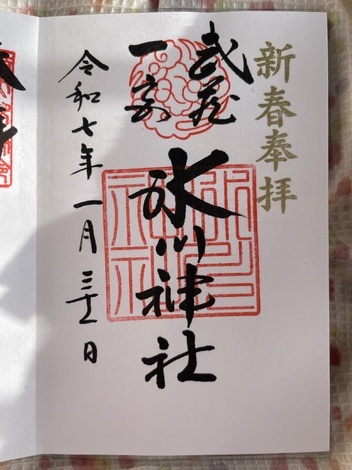 新春奉拝
武蔵
一宮
氷川神社
令和七年一月三十一日